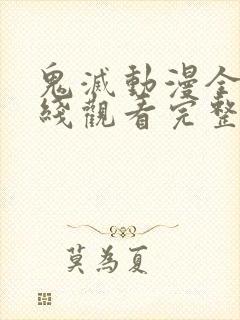 鬼滅動漫全
綫觀看完整
莫為夏